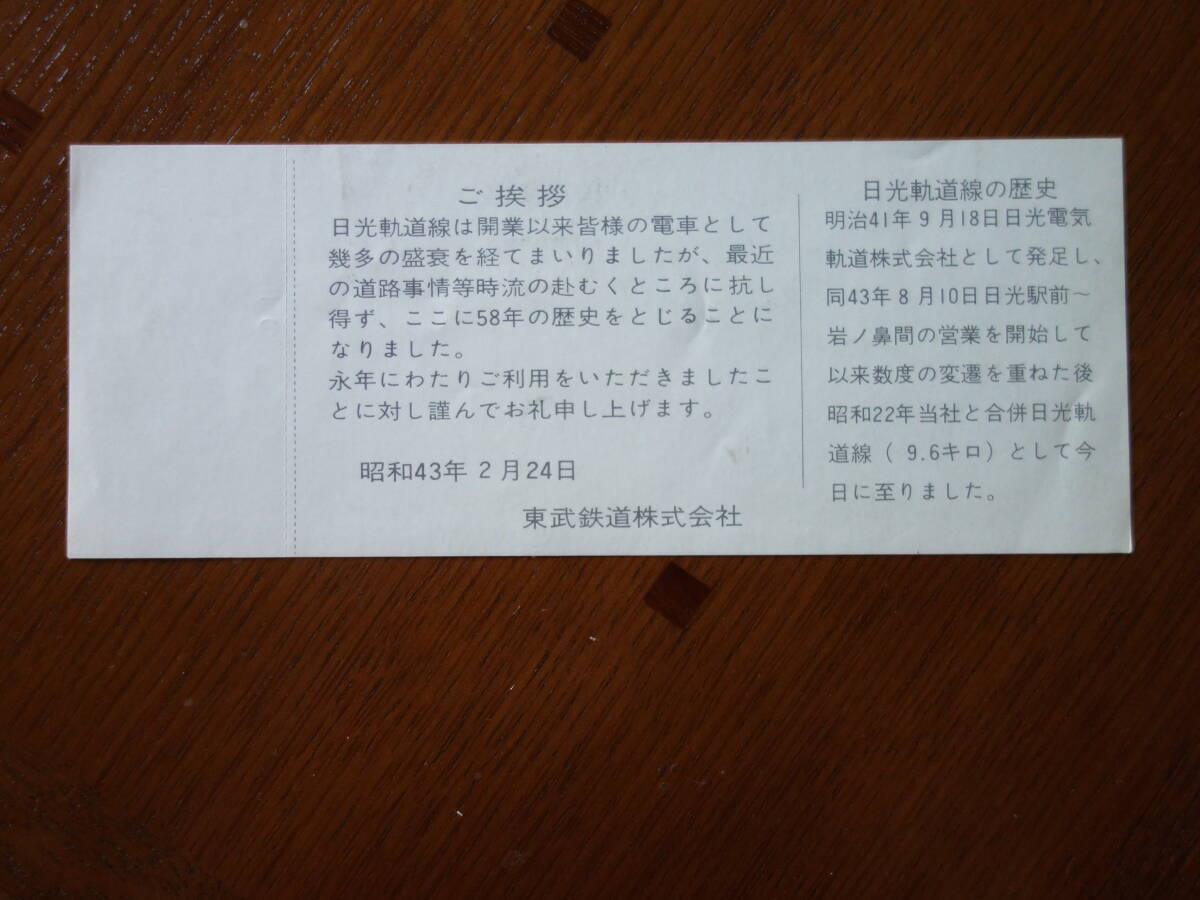 ご挨拶
日光軌道線は開業以来皆様の電車として
幾多の盛衰を経てまいりましたが、最近
の道路事情等時流の赴むくところに抗し
得ず、ここに58年の歴史をとじることに
なりました。
永年にわたりご利用をいただきましたこ
とに対し謹んでお礼申し上げます。
昭和43年2月24日
東武鉄道株式会社
日光軌道線の歴史
明治41年9月18日日光電気
軌道株式会社として発足し、
同43年8月10日日光駅前〜
岩ノ鼻間の営業を開始して
以来数度の変遷を重ねた後
昭和22年当社と合併日光軌
道線(9.6キロ)として今
日に至りました。